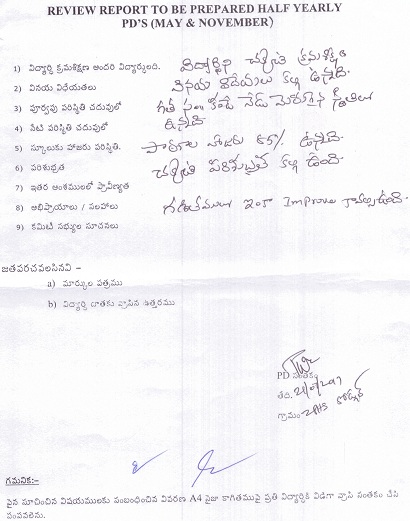 REVIEW REPORT TO BE PREPARED HALF YEARLY
PD'S (MAY & NOVEMBER)
1) విద్యార్ధి క్రమశిక్షణ అందరి విద్యార్ధులది. విద్యార్థిని చక్కటి క్రమశిక్షణ
2) వినయ విధేయతలు వినయ విదేయాలు కల్గి ఉన్నది.
3) పూర్వపు పరిస్థితి చదువులో గత కంటే నేడు మెరుగైన స్థితిలో
4) నేటి పరిస్థితి చదువులో ఉన్నది
5) స్కూలుకు హాజరు పరిస్థితి. పాఠశాల హాజరు 85% ఉన్నది.
6) పరిశుభ్రత చక్కటి పరిశుభ్రత కల్గి ఉంది.
7) ఇతర అంశములలో ప్రావీణ్యత
8) అభిప్రాయాలు / సలహాలు గణితములు ఇంకా Improve కావల్సి ఉంది.
9) కమిటి సభ్యుల సూచనలు
జతపరచవలసినవి –
a) మార్కుల పత్రము
b) విద్యార్ధి దాతకు వ్రాసిన ఉత్తరము
PD సంతకం
తేది.
గ్రామం
గమనిక:-
పైన సూచించిన విషయములకు సంబంధించిన వివరణ A4 సైజు కాగితముపై ప్రతి విద్యార్ధికి విడిగా వ్రాసి సంతకం చేసి
పంపవలెను.